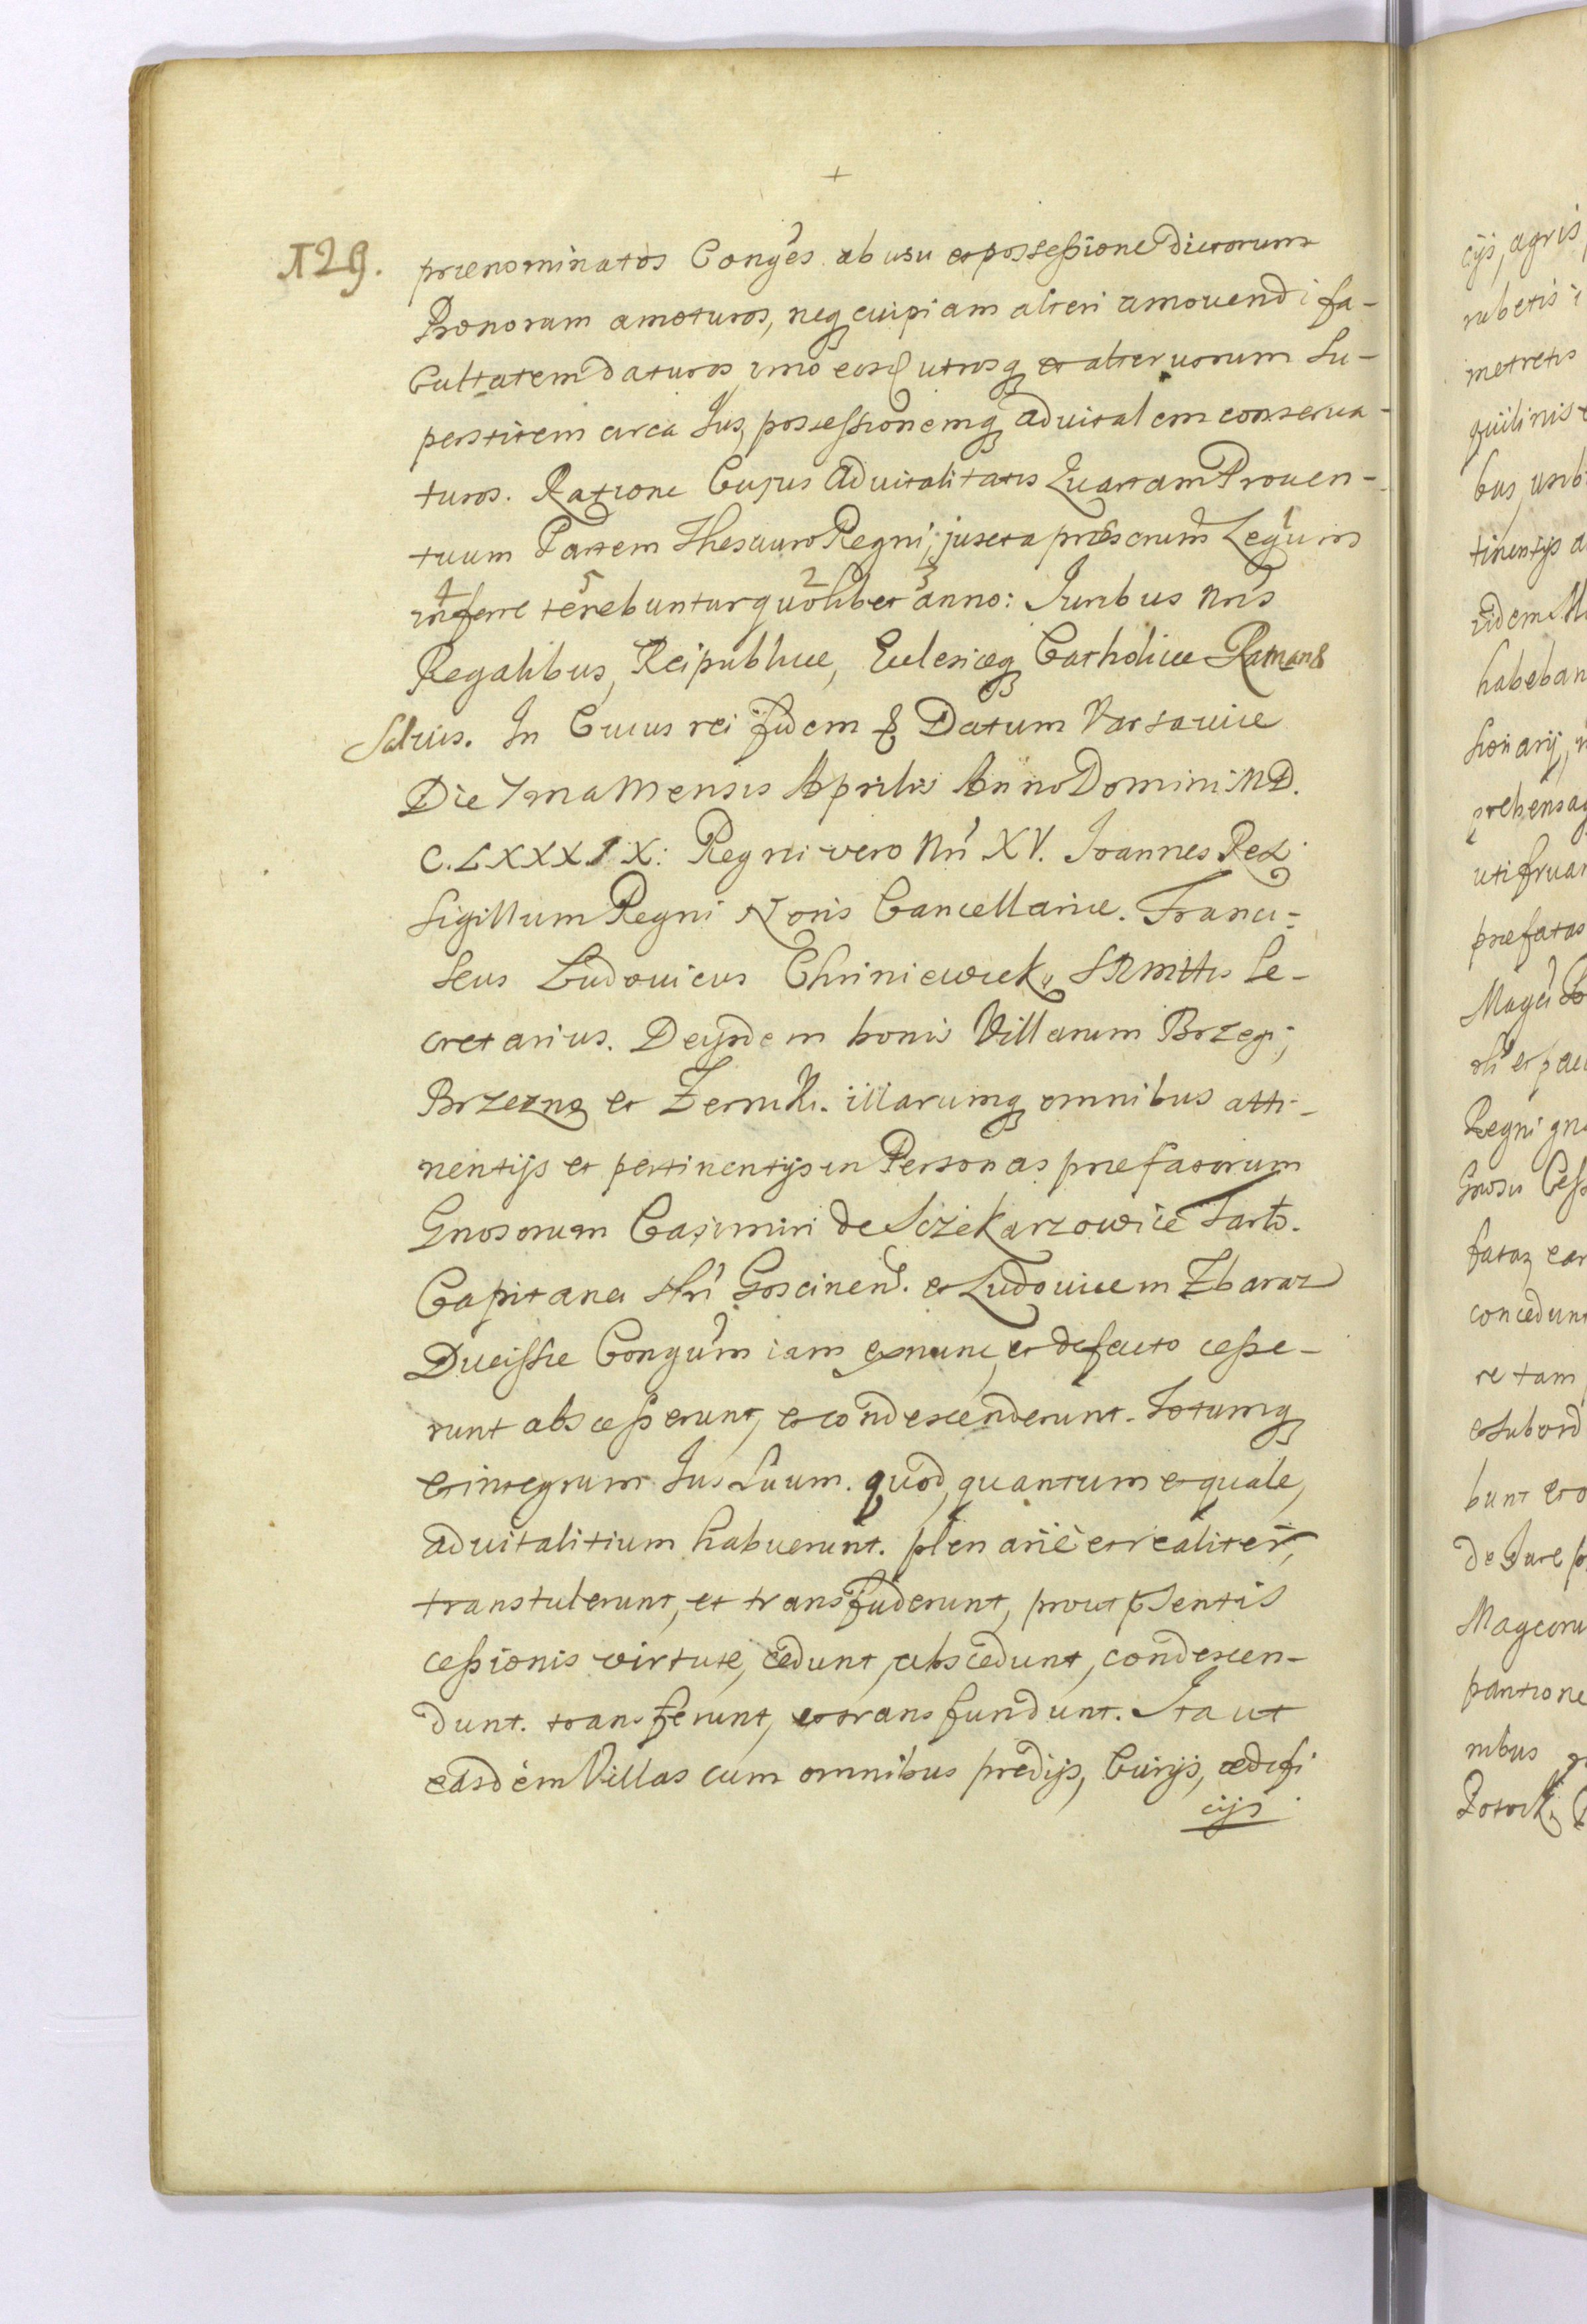 +
129. prænominatos Conges ab usu et possessione dictorum
Bonorum amoturos, neq cuipiam alteri amouendi fa-
cultatem daturos, imo eosd utrosq et alter uorum Su-
perstitem circa Jus, possessionemq aduitalem conserua-
turos. Ratione Cujus Aduitalitatis Quartam Prouen-
tuum Partem Thesauro Regni, juxta præscrum Legum
4 5 1 2 3
inferre tenebuntur quolibet anno: Juribus nris
Regalibus, Reipublicæ, Ecclesiæq Catholicæ Roman
Saluis. In Cuius rei fidem & Datum Varsauiæ
Die 7ma Mensis Aprilis Anno Domini MD.
C. LXXXIX: Regni vero Nri XV. Joannes Rex
Sigillum Regni Noris Cancellariæ. Franci-
scus Ludouicus Se-
cretarius. De ijsdem bonis Villarum Brzegi,
Brzezna et Zerniki. illarumq omnibus atti-
nentijs et pertinentijs in Personas præfatorum
Gnosorum Casimiri de Sczekarzowice Tarło.
Capitanei Goscinen. et Ludouicæ in Zbaraz
Ducissæ Congum iam ex nunc, et de facto cesse-
runt abscesserunt, et condescenderunt. Totumq
et integrum Jus Suum. quod, quantum et quale,
aduitalitium habuerunt. plenarié et realiter,
transtulerunt, et transfuderunt, prout pſentis
cessionis virtute, cedunt, abscedunt, condescen-
dunt. transferunt, et transfundunt. Ita ut
easdem Villas cum omnibus predijs, Curijs, ædifi
cijs
cijs, agris,
rubetis i
metretis
quilinis
bus, usib
tinentijs a
ijdem M
habeban
sionarij,
prehensaq
uti frua
præfatas
Regni gn
fatas ear
concedunt
re tam
et subord
bunt et o
de Jure p
Magcoru
pantione
nibus
Potocki